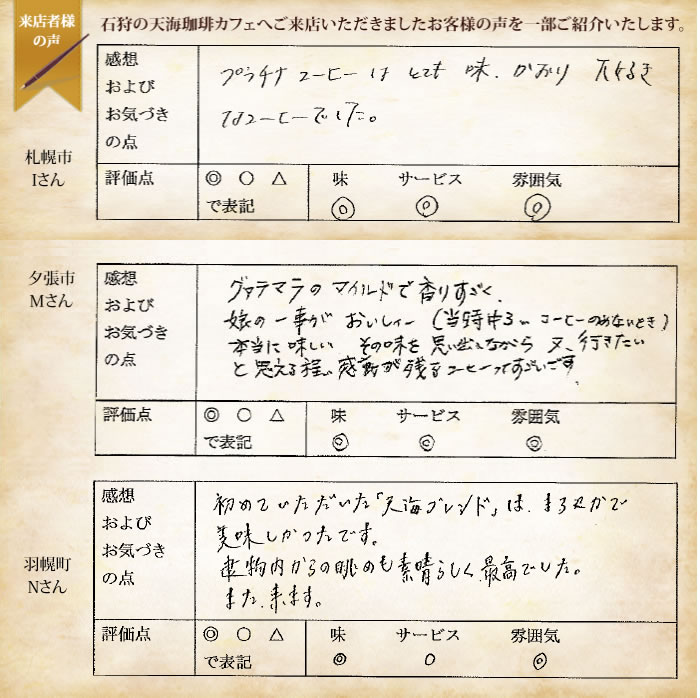 来店者様
の声
石狩の天海珈琲カフェへご来店いただきましたお客様の声を一部ご紹介いたします。
札幌市
Iさん
感想
および
お気づき
の点
プラチナコーヒーはとても味、かおり大好き
なコーヒーでした。
評価点
◎ ○ △
で表記
味 サービス 雰囲気
◎ ◎ ◎
夕張市
Mさん
感想
および
お気づき
の点
グァテマラのマイルドで香りすごく、
娘の一事がおいしいー(当時中3 コーヒーのめないとき)
本当に味しい その味を思い出しながら又、行きたい
と思える程、感動が残るコーヒーってすごいです
評価点
◎ ○ △
で表記
味 サービス 雰囲気
◎ ◎ ◎
羽幌町
Nさん
感想
および
お気づき
の点
初めていただいた「天海ブレンド」は、まろやかで
美味しかったです。
建物内からの眺めも素晴らしく、最高でした。
また、来ます。
評価点
◎ ○ △
で表記
味 サービス 雰囲気
◎ ○ ◎